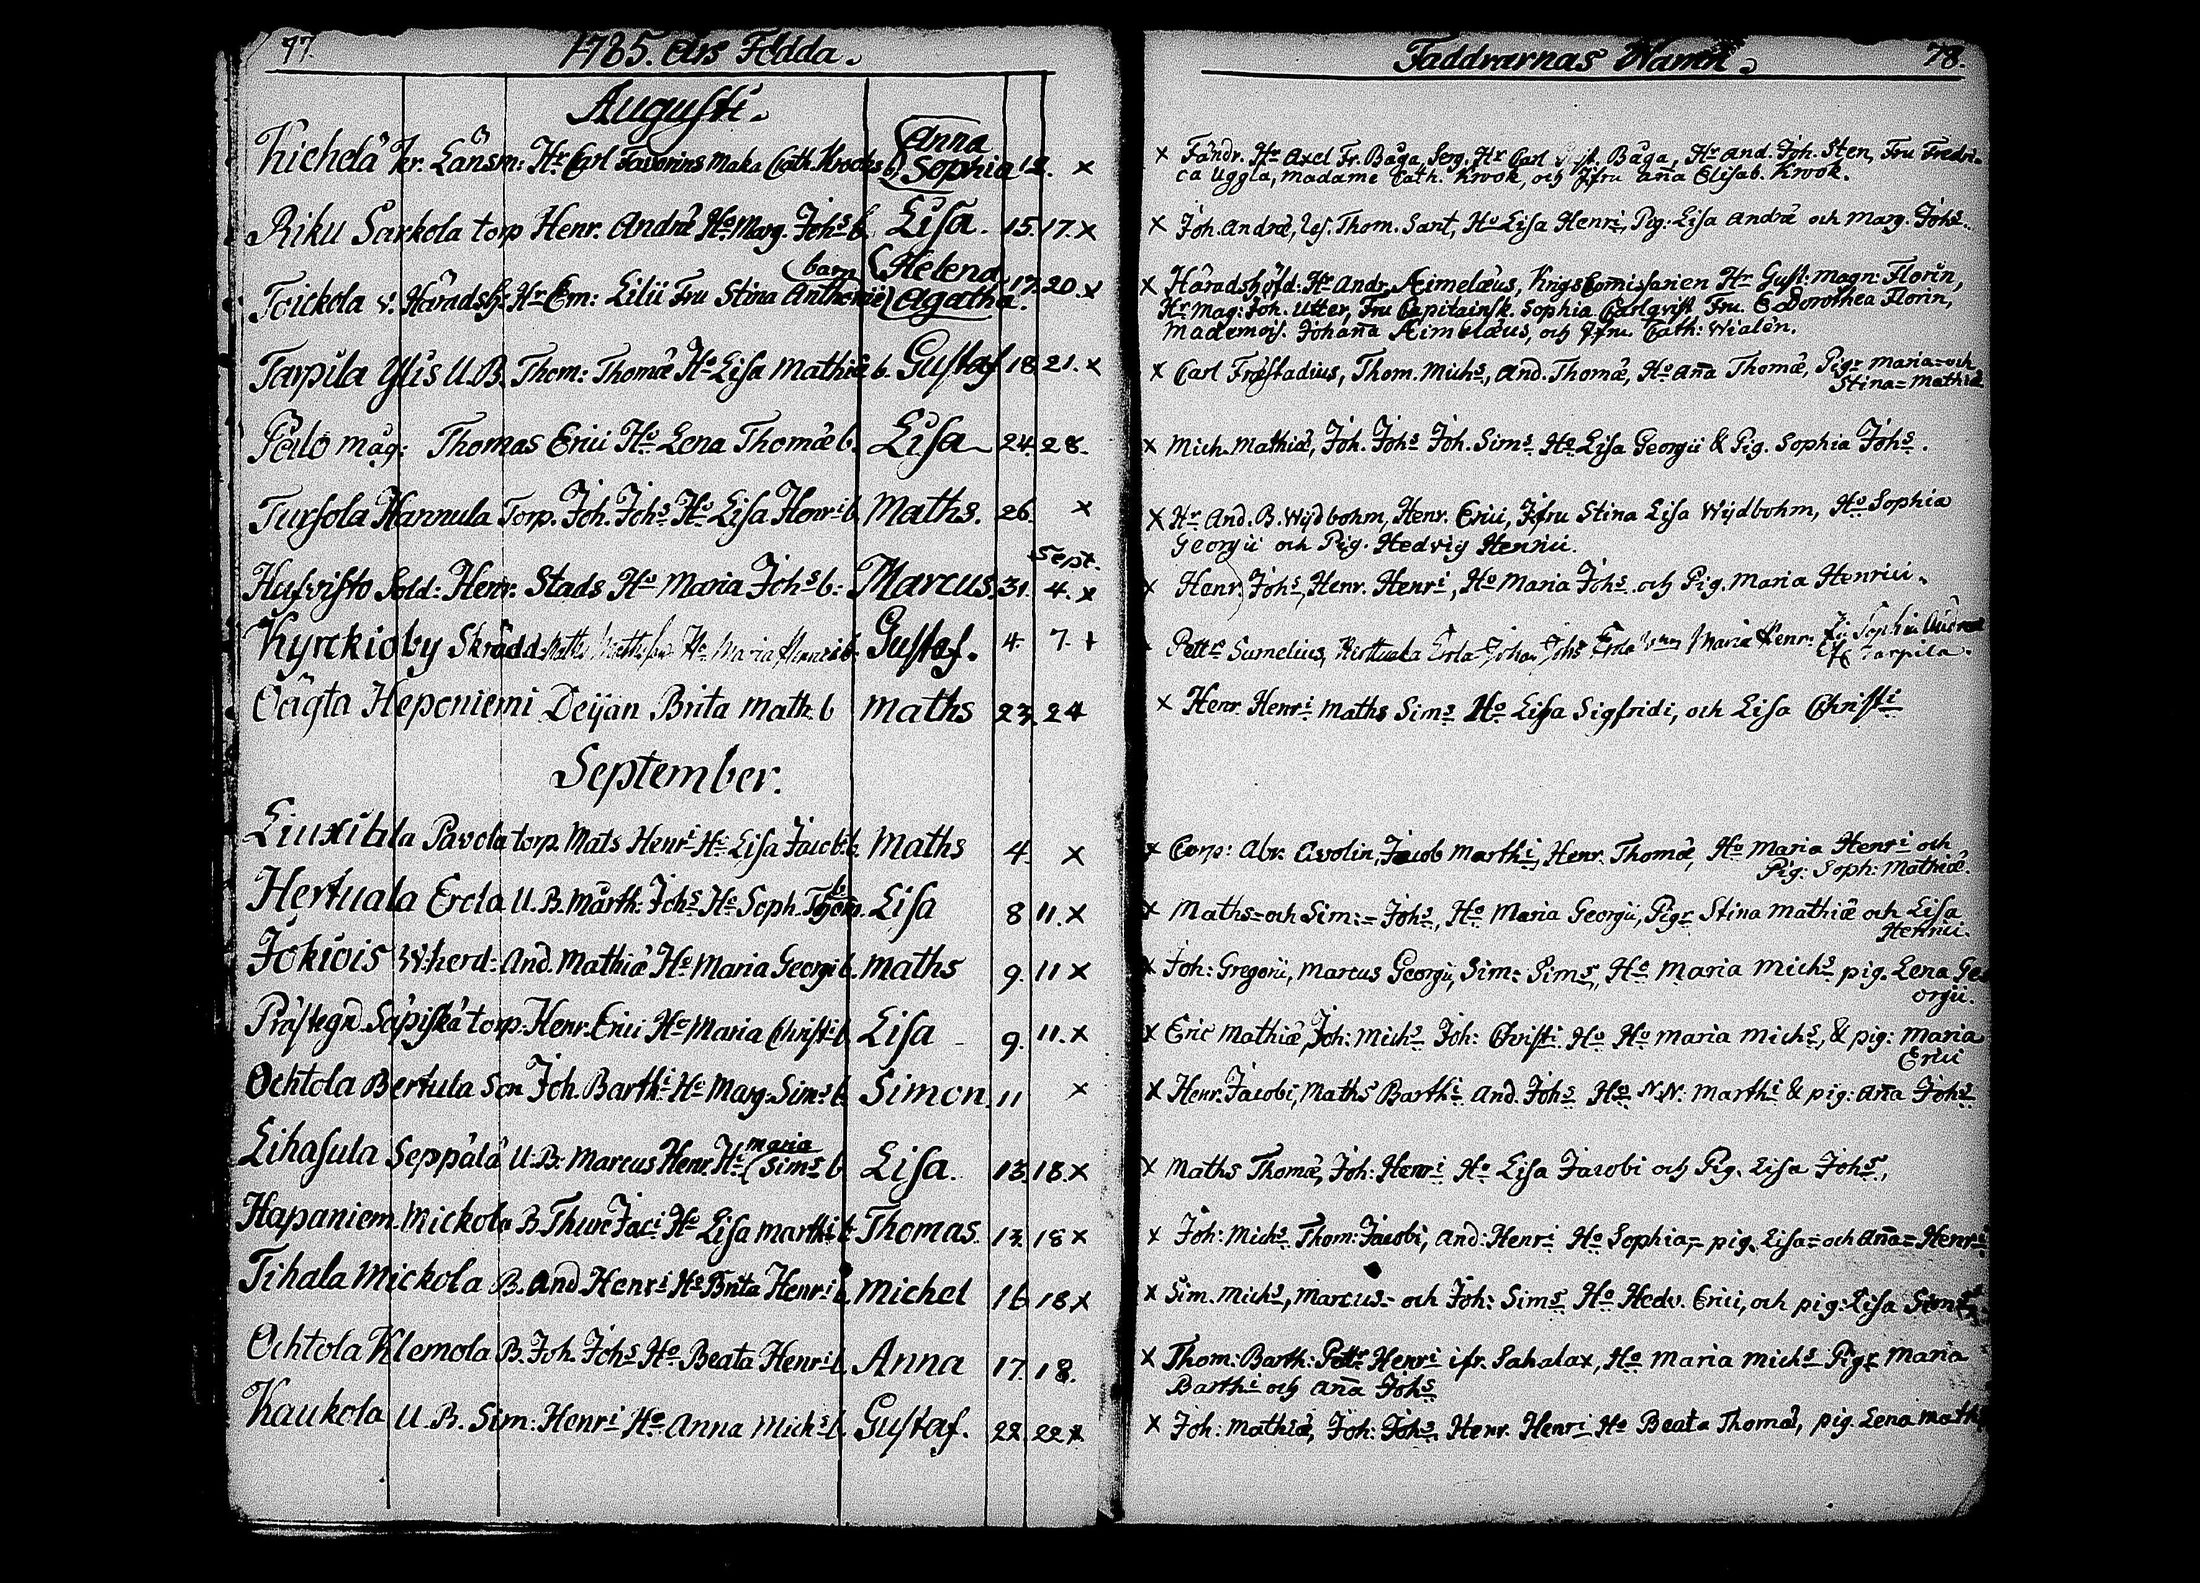 77.
1785. års Födda.
Augusti.
Kichelä kr. Länsm: Hr Carl Taverins maka Cath. Krooks b. Anna Sophia 12. x
Riku Sarkola torp Henr. Andræ Ho Marg. Johs b. Lisa. 15. 17. x
Toickola v. Häradsh: Hr Em: Lilii Fru Stina Anthonie barn Helena Agatha. 17. 20. x
Tarpila Ylis U.B. Thom: Thomæ Ho Lisa Mathiæ b. Gustaf 18 21. x
Pälö mag: Thomas Erici Ho Lena Thomæ b. Lisa 24. 28.
Tursola Hannula Torp. Joh. Johs Ho Lisa Henri b. Maths. 26. x
Sept.
Hufvisto Sold: Henr. Stads Ho Maria Johs b: Marcus. 31. 4. x
Kyrckioby Skrädd: Ho Maria b. Gustaf. 4. 7. +
Heponiemi Deijan Brita Math: b Maths 23. 24
September.
Liuxiala Pavola torp. Mats Henri Ho Lisa Jacob: b. Maths 4. x
Hertuala Erola U.B. Märth: Johs Ho Soph. Thom. b. Lisa 8 11. x
Jokiois W. herd: And. Mathiæ Ho Maria Georgi b. Maths 9. 11 x
Prästegd. Säpiskä torp. Henr. Erici Ho Maria Christi b. Lisa 9. 11. x
Ochtola Bertula Son Joh. Barthi Ho Marg. Sims b. Simon. 11 x
Lihasula Seppälä U.B. Marcus Henr. Ho Maria Sims b. Lisa. 13. 18. x
Hapaniem Mickola B. Thure Jaci Ho Lisa Marthi b. Thomas. 13. 18 x
Tihala Mickola B. And. Henri Ho Brita Henri b. Michel 16 18 x
Ochtola Klemola B. Joh. Johs Ho Beata Henri b. Anna 17. 18.
Kaukola U.B. Sim: Henri Ho Anna Michs b. Gustaf. 22. 22 x.
Faddrarnas Namn. 78.
x Fändr. Hr Axel Fr. Båga, Serg. Hr Carl Båga, Hr And. Joh. Sten, Fru Fredri-
ca Uggla, Madame Cath. Krook, och Jfru Aña Elisab. Krook.
x Joh. Andræ, Thom. Sant, Ho Lisa Henri, Pig: Lisa Andræ och Marg. Johs.
x Häradshöfd: Hr Andr. Aimelæus, Krigs Comissarien Hr Gust: Magn: Florin,
Hr Mag: Joh. Utter, Fru Capitainsk. Sophia Carlqvist, Fru. C Dorothea Florin,
Mademois. Johaña Aimelæus, och Jfru. Cath: Wialén.
x Carl Fröstadius, Thom. Michs, And. Thomæ, Ho Aña Thomæ, Pigr Maria= och
Stina= Mathiæ
x Mich. Mathiæ, Joh. Johs Joh. Sims Ho Lisa Georgii & Pig. Sophia Johs.
x Hr And. B. Wijdbohm, Henr. Erici, Jfru Stina Lisa Wijdbohm, Ho Sophia
Georgii och Pig. Hedvig Henrici.
x Henr. Johs, Henr. Henri, Ho Maria Johs och Pig. Maria Henrici.
Pettr Sumelius, Hertuala Erola Johan Johs Erola Maria Henr:
Tarpila.
x Henr. Henri Maths Sims Ho Lisa Sigfridi, och Lisa Christi
x Corp: Abr. Avolin, Jacob Marthi, Henr. Thomæ, Ho Maria Henri och
Pig: Soph: Mathiæ.
x Maths= och Sim:= Johs, Ho Maria Georgii, Pigr Stina Mathiæ och Lisa
Henrici.
x Joh: Gregorii, Marcus Georgii, Sim: Sims, Ho Maria Michs pig. Lena Ge-
orgii.
x Eric Mathiæ, Joh: Michs Joh: Christi Ho Ho Maria Michs, & pig: Maria
Erici
x Henr. Jacobi, Maths Barthi And. Johs Ho N.N. Marthi & pig: Aña Johs
x Maths Thomæ, Joh: Henri Ho Lisa Jacobi och Pig. Lisa Johs,
x Joh: Michs Thom: Jacobi, And: Henri Ho Sophia,= pig. Lisa= och Aña= Henri
x Sim. Michs, Marcus- och Joh: Sims Ho Hedv. Erici, och pig: Lisa Sims
x Thom: Barth: Pettr Henri ifr. Sahalax, Ho Maria Michs Pigr Maria
Barthi och Aña Johs
x Joh: Mathiæ, Joh: Johs, Henr. Henri Ho Beata Thomæ, pig. Lena Math